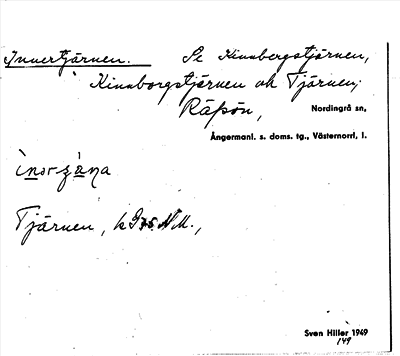 Innertjärnen. Se Kinnbergstjärnen,
Kinnborgstjärnen ok Tjärnen;
Räpön, Nordingrå sn,
Ångermanl. s. doms. tg., Västernorrl, l.
Tjärnen,
Sven Hiller 1949
149